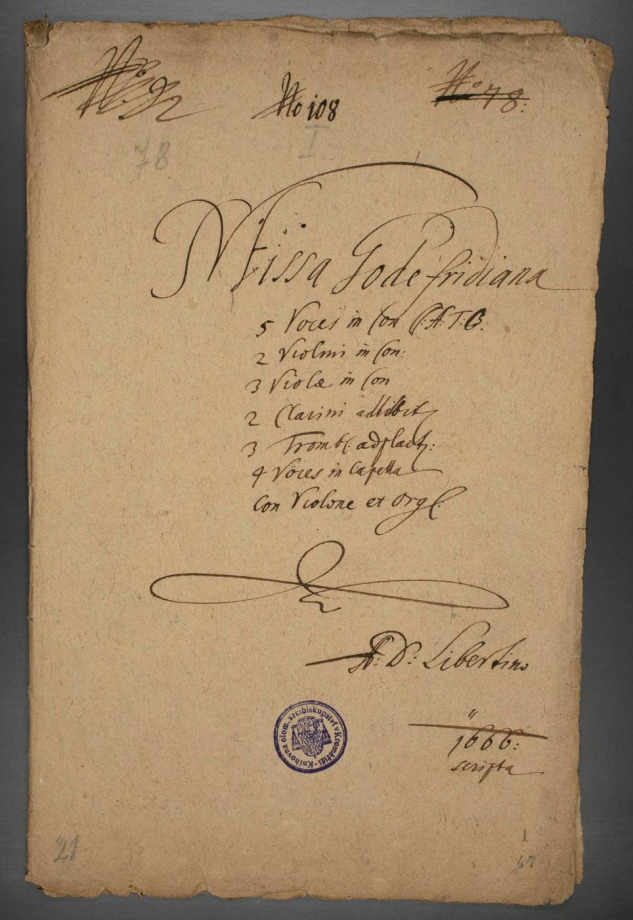 No 108
No 78:
78
I
Missa Godefridiana
5 Voces in Con C: A: T: B:
2 Violini in Con:
3 Violæ in Con
2 Clarini ad libit
3 Tromb: ad plac:
4 Voces in Capella
Con Violone et Org:
A: D: Libertino
1666:
scripta
Knihovna olom. arcibiskupství v Kroměříži
21
1
47